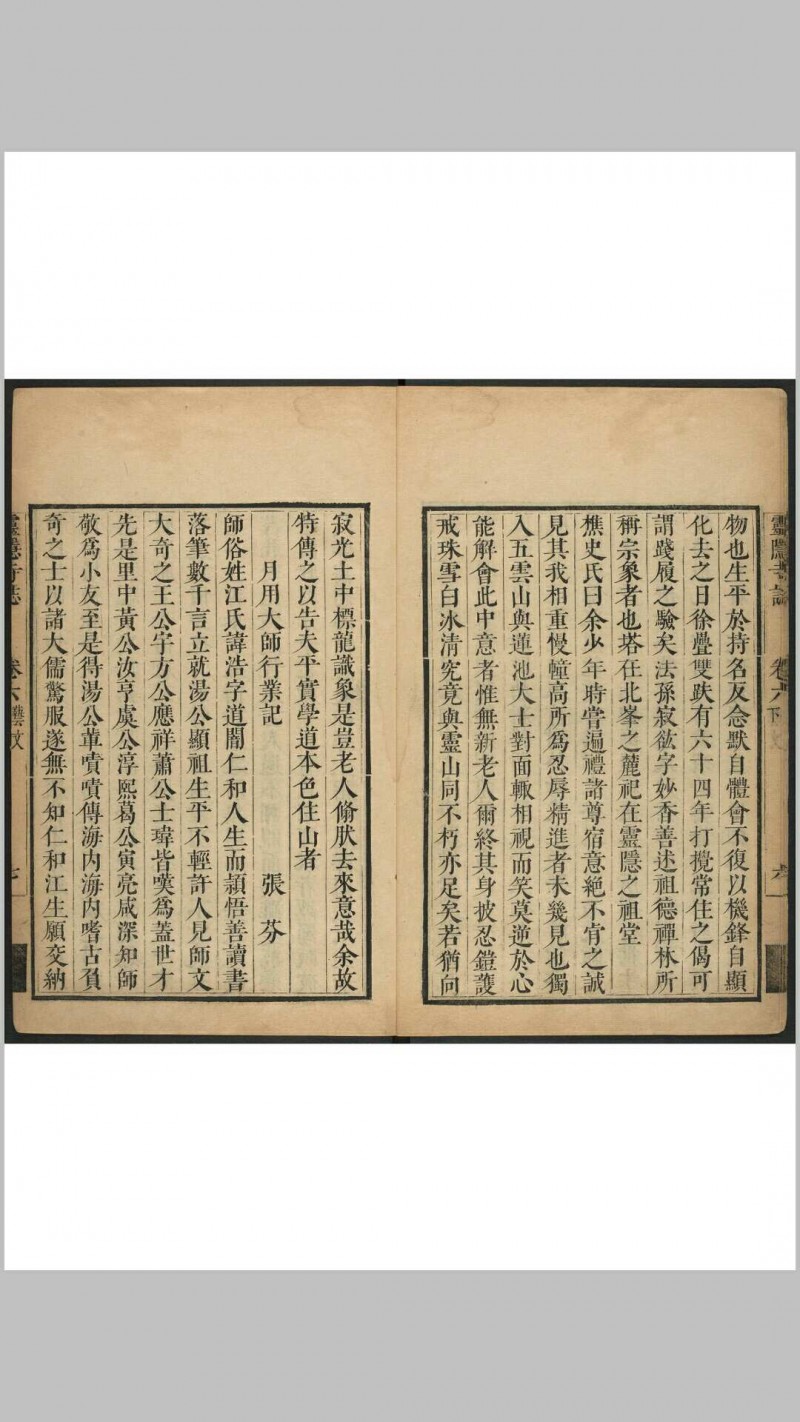 靈隱寺誌 卷六下 六
物也生平於持名反念默自體會不復以機鋒自顯
化去之日徐疊雙趺有六十四年打攪常住之偈可
謂踐履之驗矣法孫寂㳒字妙香善述祖德禪林所
稱宗象者也塔在北峯之麓祀在靈隱之祖堂
樵史氏曰余少年時嘗遍禮諸尊宿意絶不肯之誠
見其我相重慢幢高所爲忍辱精進者未幾見也獨
入五雲山與蓮池大士對面輙相視而笑莫逆於心
能解會此中意者惟無新老人爾終其身披忍鎧護
戒珠雪白冰清究竟與靈山同不朽亦足矣若猶向
寂光土中標龍識象是豈老人脩肰去來意哉余故
特傳之以告夫平實學道本色住山者
月用大師行業記 張芬
師俗姓江氏諱浩字道闇仁和人生而頴悟善讀書
落筆數千言立就湯公顯祖生平不輕許人見師文
大奇之王公宇方公應祥蕭公士瑋皆嘆爲蓋世才
先是里中黃公汝亨虞公淳熙葛公寅亮咸深知師
敬爲小友至是得湯公輩嘖嘖傳海内海内嗜古負
奇之士以諸大儒驚服遂無不知仁和江生願交納
靈隱寺誌 卷六 七